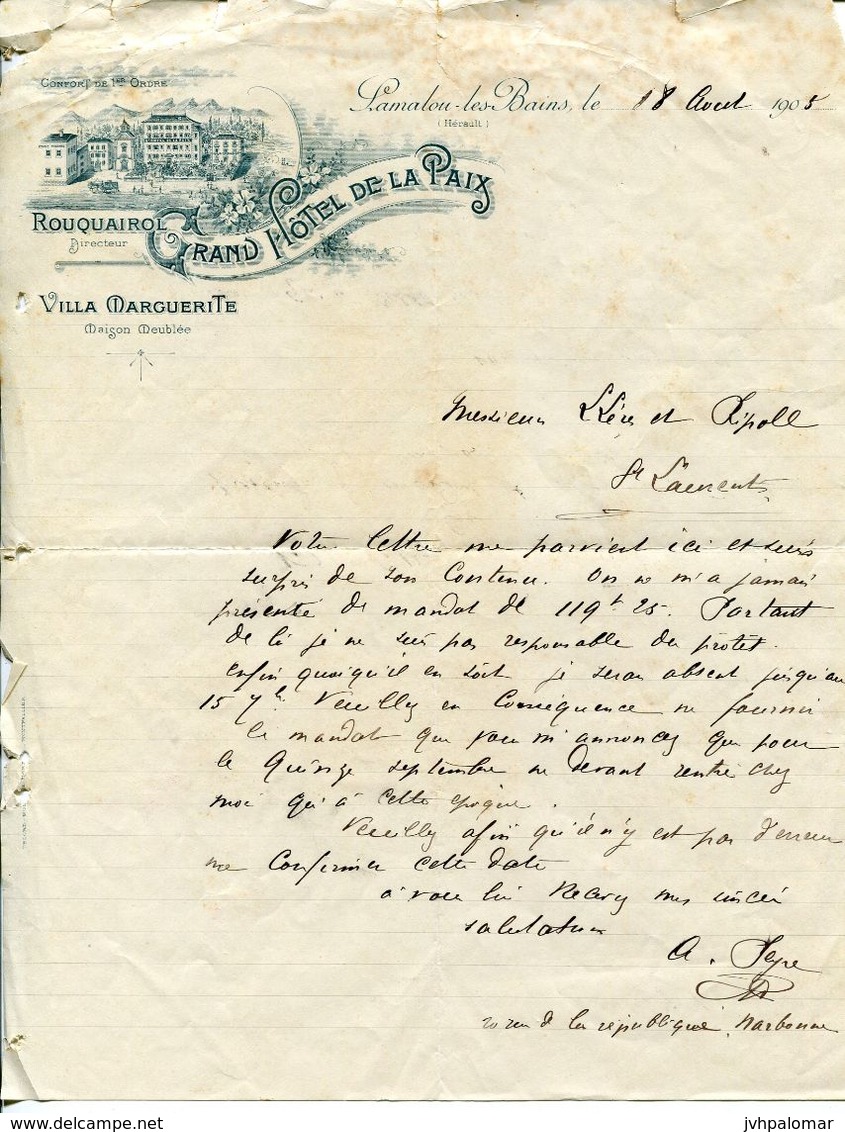 CONFORT DE 1ER ORDRE
Lamalou-les-Bains, le 18 Aout 1905
(Hérault)
GRAND HÔTEL DE LA PAIX
ROUQUAIROL
Directeur
VILLA MARGUERITE
Maison Meublée
Messieurs et Ripoll
St Laurent
Votre lettre me parvient ici et suis
surpris de son Contenu. On ne m'a jamais
présenté de mandat de 119f 25. Partant
de là je ne suis pas responsable du protet.
Enfin quoiqu'il en soit je serai absent jusqu'au
15 7bre Veuillez en Conséquence ne fournir
le mandat que vous m'annoncez que pour
le Quinze septembre ne devant rentrer chez
moi qu'à cette époque.
Veuillez afin qu'il n'y est pas d'erreur
me Confirmer cette date
à vous lire Recevez mes sincères
salutations
A. Peyre
rue de la république, Narbonne
delcampe.net
jvhpalomar